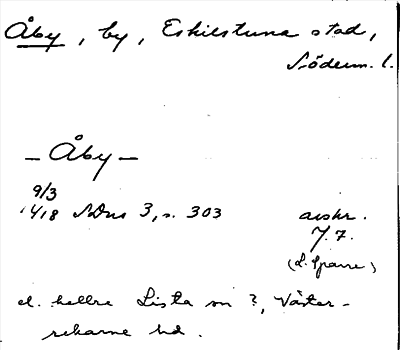 Åby, by, Eskilstuna stad,
Söderm. l.
— Åby —
9/3
1418 SDns 3, s. 303 avskr.
J. 7.
(L. Sparre)
el. hellre Lista sn ?, Väster-
rekarne hd.